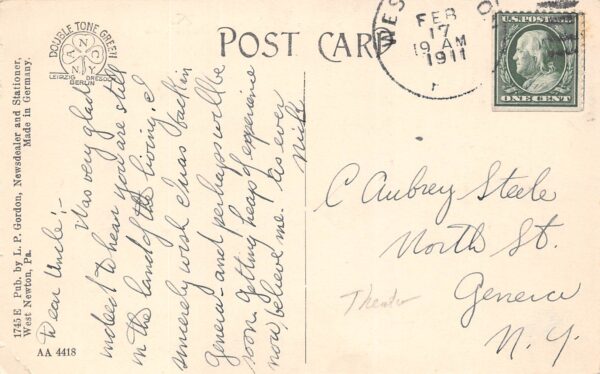 POST CARD
DOUBLE TONE GREEN
ANNY
LEIPZIG DRESDEN
BERLIN
1745 E Pub. by L. P. Gordon, Newsdealer and Stationer,
West Newton, Pa. Made in Germany.
AA 4418
WES
FEB
17
AM
1911
U.S. POSTAGE
ONE CENT
Dear Uncle:-
Was very glad
indeed to hear you are still
in the land of the living. I
sincerely wish I was back in
Geneva - and perhaps will be
soon. Getting heaps of experience
now, believe me. As ever
Nick
C Aubrey Steele
North St.
Geneva
N. Y.
Theater